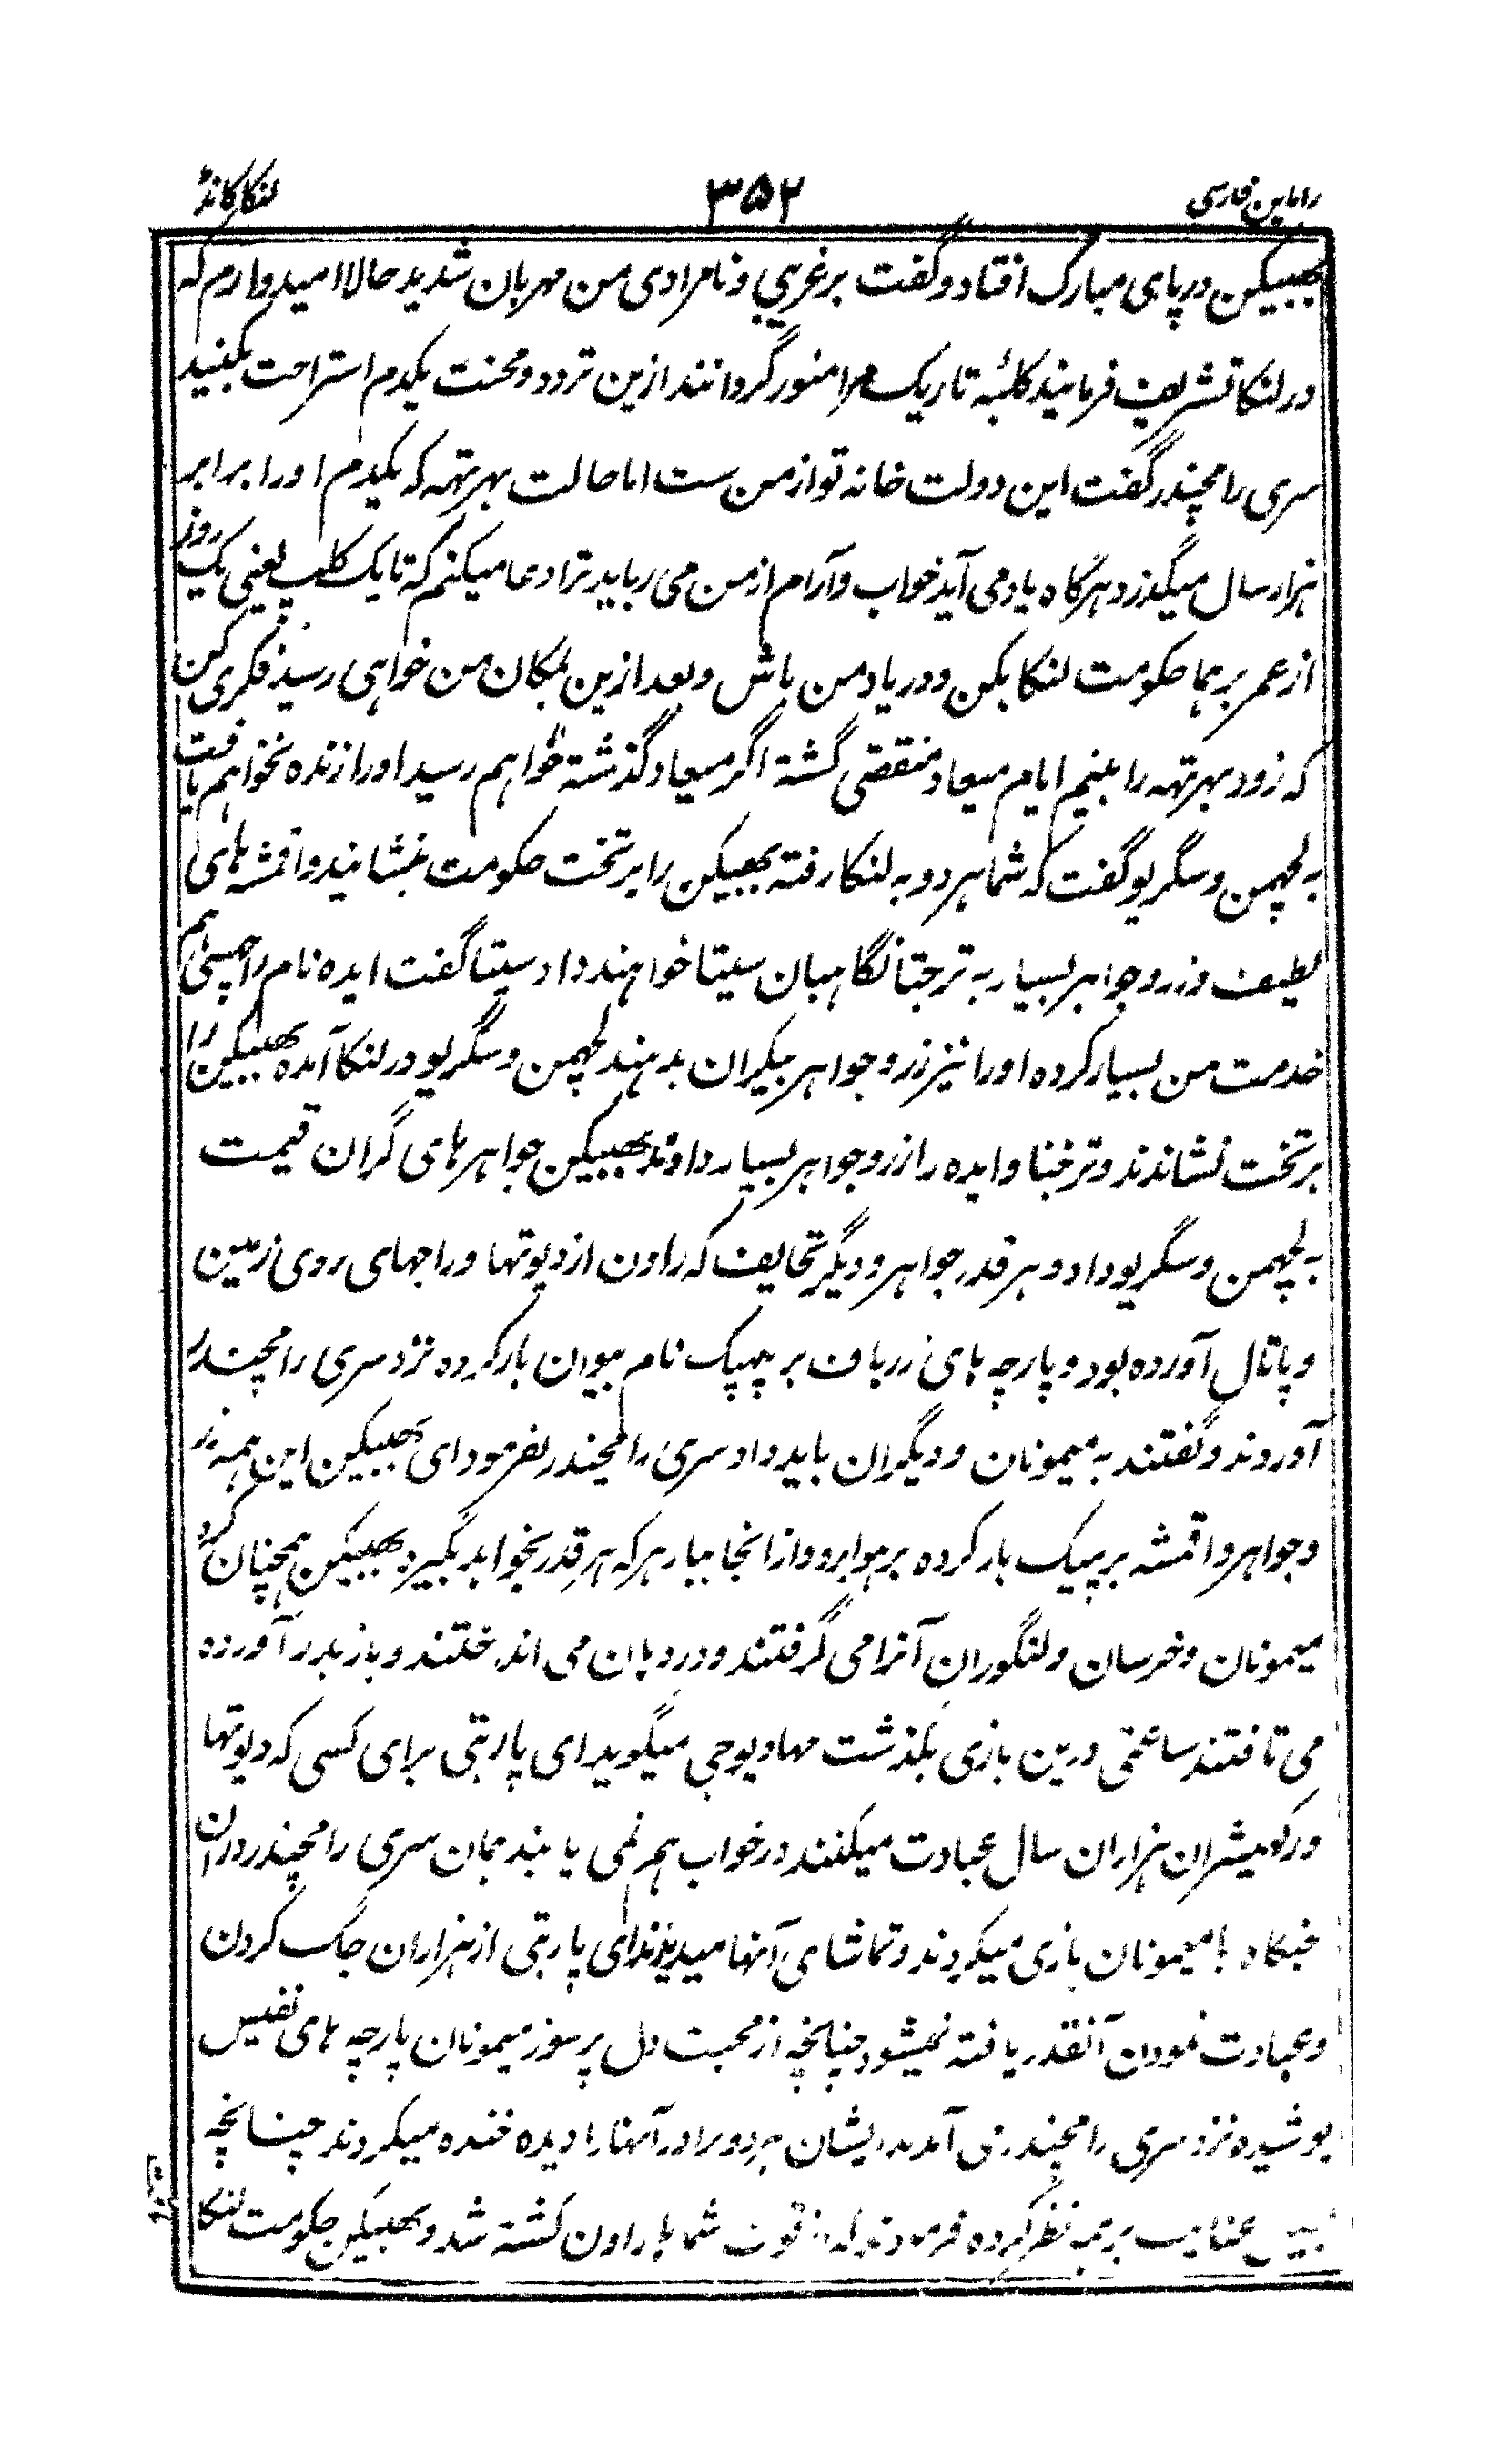 راماین فارسی ۳۵۲ لنکاکانڈ
بھبیکن درپای مبارک افتاد و گفت برغریبی و نامرادی من مهربان شدید حالا امیدوارم که
در لنکا تشریف فرمایند کلبۀ تاریک مرا منور گردانند ازین تردد و محنت یکدم استراحت بکنید
سری رامچندر گفت این دولت خانه تو از من ست اما حالت بهرتهه که یکدم او را برابر
هزار سال میگذرد هرگاه یاد می آید خواب و آرام از من می رباید ترا دعا میکنم که تا یک کلپ یعنی یک روز
از عمر برهما حکومت لنکا بکن و در یاد من باش و بعد ازین بمکان من خواهی رسید فکری کن
که زود بهرتهه را بینم ایام میعاد منقضی گشته اگر میعاد گذشته خواهم رسید او را زنده نخواهم یافت
به لچهمن و سگریو گفت که شما هر دو به لنکا رفته بھبیکن را بر تخت حکومت بنشانید و اقمشه های
لطیف و زر و جواهر بسیار به ترجتا نگاهبان سیتا خواهند داد سیتا گفت ایده نام راچسنی هم
خدمت من بسیار کرده او را نیز زر و جواهر بیکران بدهند لچهمن و سگریو در لنکا آمده بھبیکن را
بر تخت نشاندند و ترجتا و ایده را زر و جواهر بسیار دادند بھبیکن جواهرهای گران قیمت
به لچهمن و سگریو داد و هر قدر جواهر و دیگر تحایف که راون از دیوتها و راجهای روی زمین
و پاتال آورده بود و پارچه های زرباف بر پہپک نام بیوان بار کرده نزد سری رامچندر
آوردند و گفتند به میمونان و دیگران باید داد سری رامچندر بفرمود ای بھبیکن این همه زر
و جواهر و اقمشه بر پپیک بار کرده بر هوا برو و از انجا ببار هر که هر قدر بخواهد بگیرد بھبیکن همچنان کرد
میمونان و خرسان و لنگوران آنرا می گرفتند و در دهان می انداختند و باز بدر آورده
می تافتند ساعتی درین بازی بگذشت مهادیوجی میگوید ای پاربتی برای کسی که دیوتها
و رکهیشران هزاران سال عبادت میکنند در خواب هم نمی یابند همان سری رامچندر دران
جنگاه با میمونان بازی میکردند و تماشای آنها میدیدند ای پاربتی از هزاران جگ کردن
و عبادت نمودن آنقدر یافته نمیشود چنانچه از محبت دل پر سوز میمونان پارچه های نفیس
پوشیده نزد سری رامچندر می آمدند ایشان هر دو برادر آنها را دیده خنده میکردند چنانچه
عنایت بر همه نظر کرده فرمودند که از قوت شما ها راون کشته شد و بھبیکن حکومت لنکا